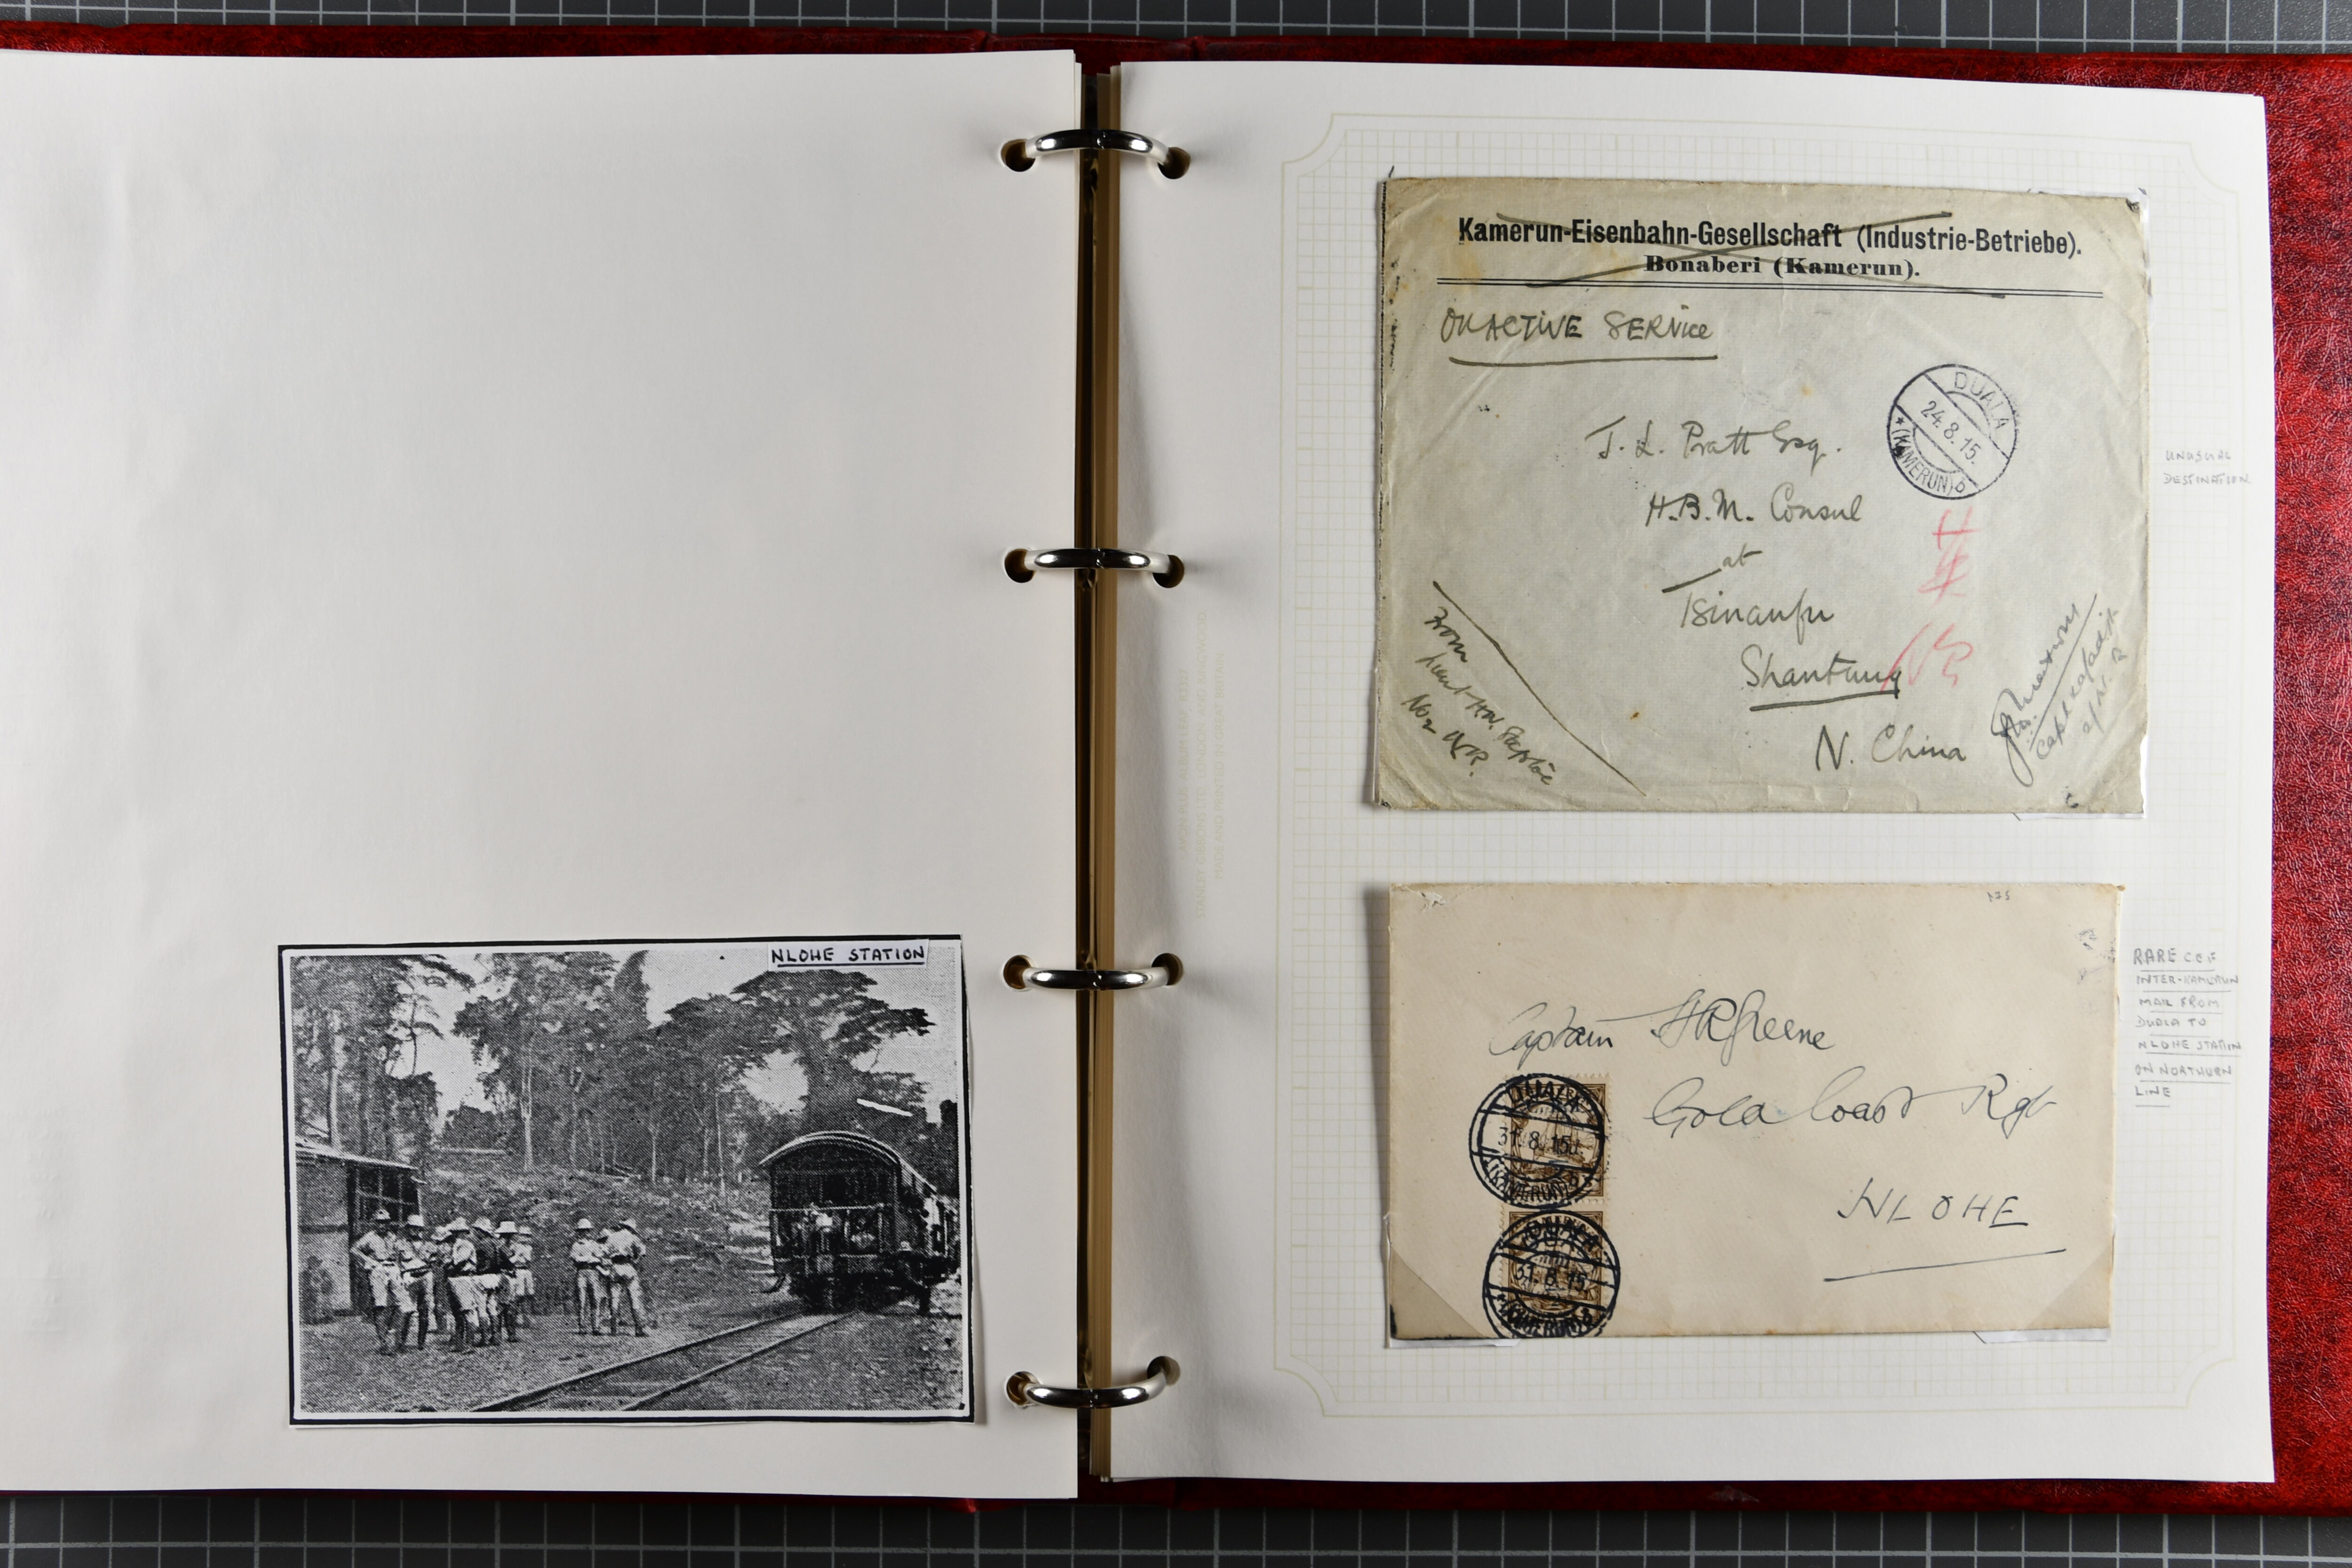 NLOHE STATION
Kamerun-Eisenbahn-Gesellschaft (Industrie-Betriebe).
Bonaberi (Kamerun).
ON ACTIVE SERVICE
DUALA
24.8.15.
*(KAMERUN)
J. L. Pratt Esq.
H.B.M. Consul
at
Tsinanfu
Shantung
N. China
From
No 2
UNUSUAL
DESTINATION
Captain Greene
Gold Coast Rgt
NLOHE
DUALA
31.8.15
(KAMERUN)
DUALA
31.8.15
(KAMERUN)
RARE CEF
INTER-KAMERUN
MAIL FROM
DUALA TO
NLOHE STATION
ON NORTHERN
LINE
STANLEY GIBBONS LTD, LONDON AND RINGWOOD
MADE AND PRINTED IN GREAT BRITAIN